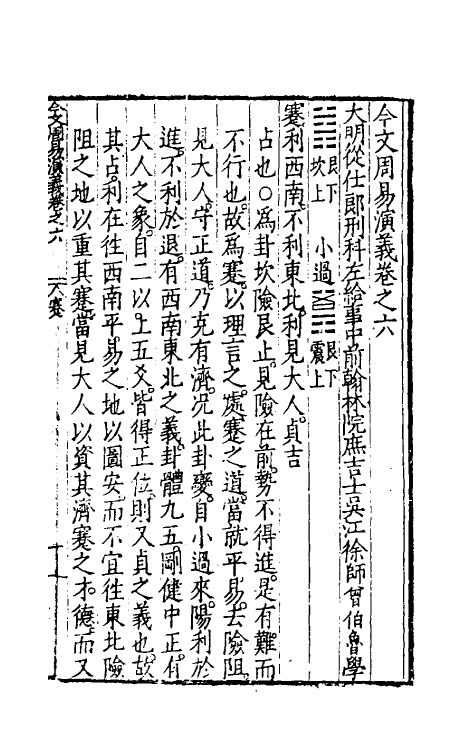 今文周易演義卷之六
大明從仕郎刑科左給事中前翰林院庶吉士吳江徐師曾伯魯學
䷦艮下坎上 小過䷽艮下震上
蹇利西南。不利東北。利見大人。貞吉
占也○爲卦坎險艮止。見險在前。勢不得進。是有難而
不行也。故爲蹇。以理言之。處蹇之道。當就平易。去險阻。
見大人。守正道。乃克有濟。况此卦變。自小過來。陽利於
進。不利於退。有西南東北之義。卦體九五。剛健中正。有
大人之象。自二以上五爻。皆得正位。則又貞之義也。故
其占。利在徃西南平。易之地以圖安。而不宜徃東北險
阻之地以重其蹇。當見大人以資其濟蹇之才。德。而又
今文周易演義卷之六 蹇